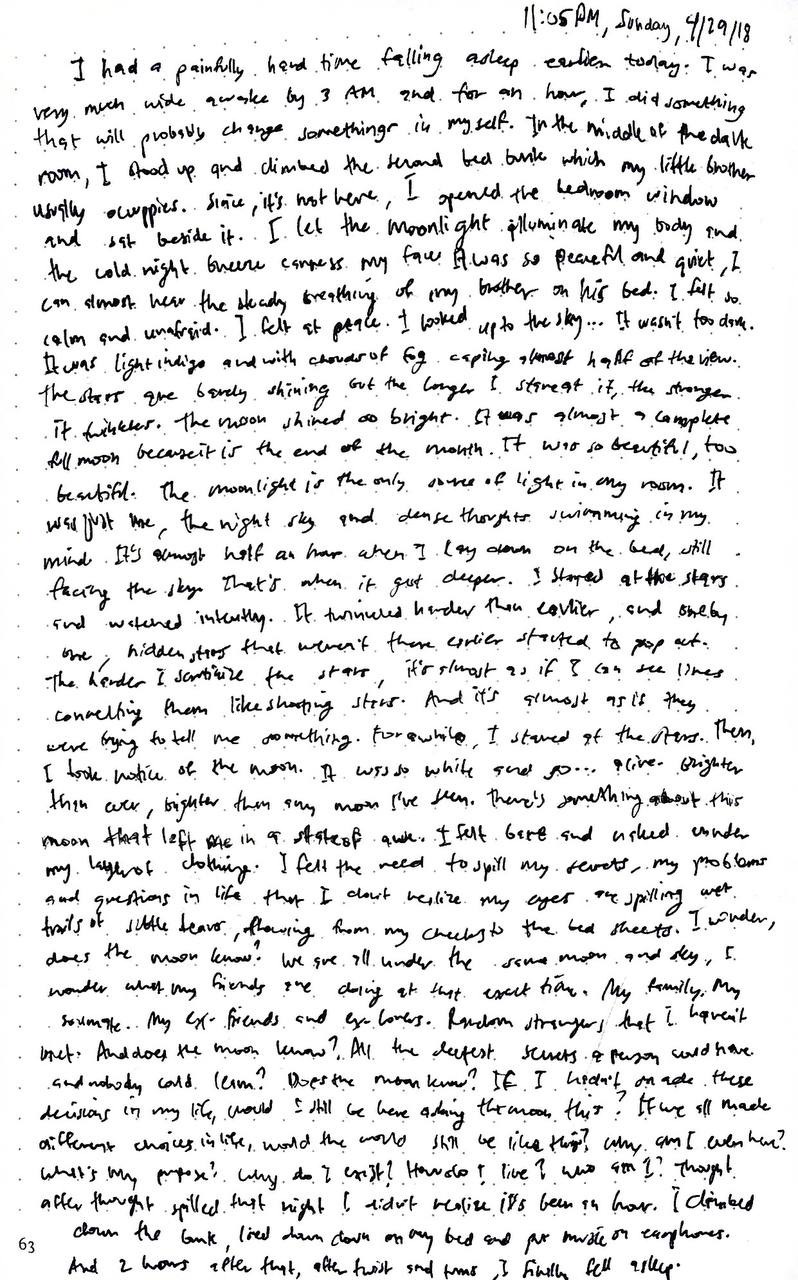 11:05 AM, Sunday, 4/29/18
I had a painfully hard time falling asleep earlier today. I was
very much wide awake by 3 AM and for an hour, I did something
that will probably change somethings in myself. In the middle of the dark
room, I stood up and climbed the second bed bunk which my little brother
usually occuppies. Since, it's not here, I opened the bedroom window
and sat beside it. I let the moonlight illuminate my body and
the cold night breeze carress my face. It was so peaceful and quiet, I
can almost hear the steady breathing of my brother on his bed. I felt so
calm and unafraid. I felt at peace. I looked up to the sky... It wasn't too dark.
It was light indigo and with clouds of fog caping almost half of the view.
The stars are barely shining but the longer I stare at it, the stronger
it twinkles. The moon shined so bright. It was almost a complete
full moon because it is the end of the month. It was so beautiful, too
beautiful. The moonlight is the only source of light in my room. It
was just me, the night sky and dense thoughts swimming in my
mind. It's almost half an hour when I lay down on the bed, still
facing the sky. That's when it got deeper. I stared at the stars
and watched intently. It twinkled harder than earlier, and one by
one, hidden stars that weren't there earlier started to pop out.
The harder I scrutinize the stars, it's almost as if I can see lines
connecting them like shooting stars. And it's almost as if they
were trying to tell me something. For awhile, I stared at the stars. Then,
I took notice of the moon. It was so white and so... alive. Brighter
than ever, brighter than any moon I've seen. There's something about this
moon that left me in a state of awe. I felt bare and naked under
my layer of clothing. I felt the need to spill my secrets, my problems
and questions in life that I don't realize my eyes are spilling wet
trails of subtle tears, flowing from my cheeks to the bed sheets. I wonder,
does the moon know? We are all under the same moon and sky, I
wonder what my friends are doing at that exact time. My family. My
soulmate. My ex-friends and ex-lovers. Random strangers that I haven't
met. And does the moon know? All the deepest secrets a person could have
and nobody could learn? Does the moon know? If I hadn't made these
decisions in my life, would I still be here asking the moon this? If we all made
different choices in life, would the world still be like this? Why am I even here?
What's my purpose? Why do I exist? How do I live? Who am I? Thought
after thought spilled that night I didn't realize it's been an hour. I climbed
down the bunk, lied down down on my bed and put music on earphones.
And 2 hours after that, after twist and turns, I finally fell asleep.
63